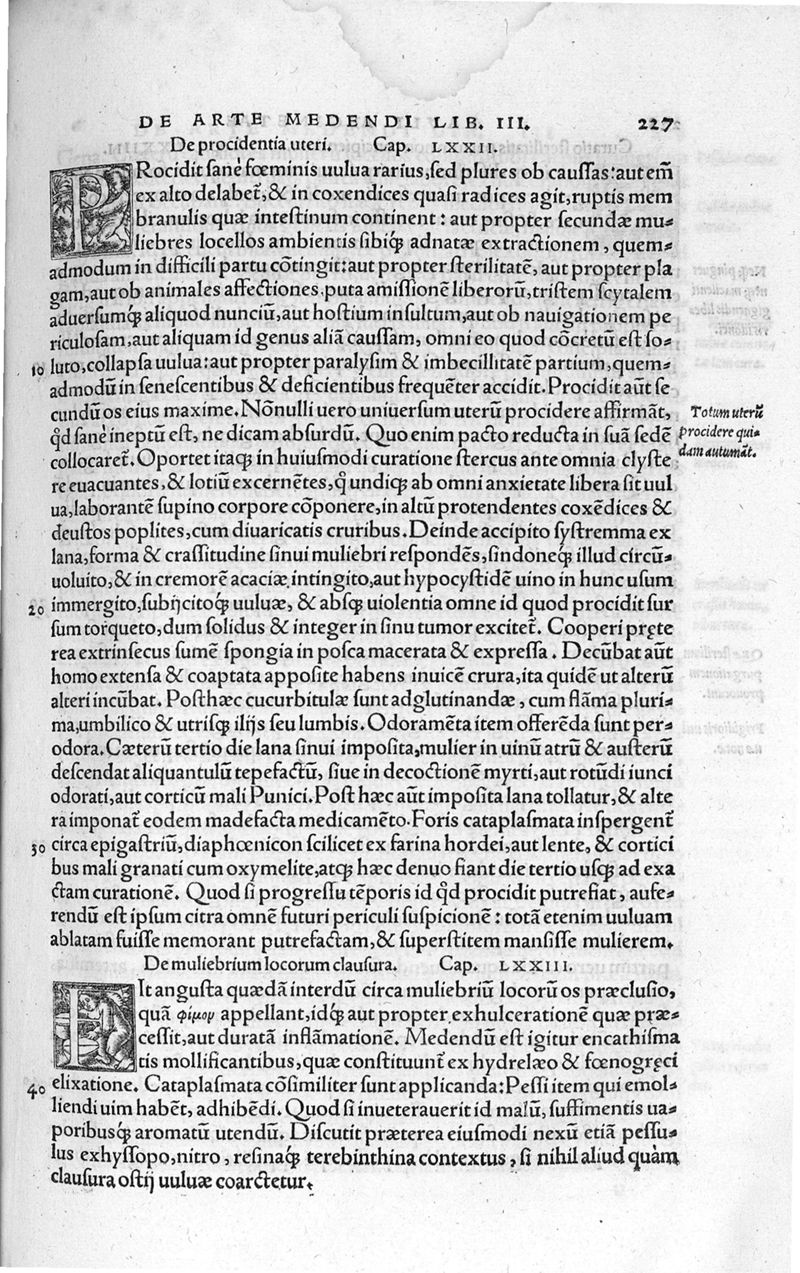 DE ARTE MEDENDI LIB. III. 227
De procidentia uteri. Cap. LXXII.
PRocidit sanè fœminis uulua rarius, sed plures ob caussas: aut em̃
ex alto delabet̃, & in coxendices quasi radices agit, ruptis mem
branulis quæ intestinum continent: aut propter secundæ mu-
liebres locellos ambientis sibiq́; adnatæ extractionem, quem-
admodum in difficili partu cõtingit: aut propter sterilitatẽ, aut propter pla
gam, aut ob animales affectiones, puta amissionẽ liberorũ, tristem scytalem
aduersumq́; aliquod nunciũ, aut hostium insultum, aut ob nauigationem pe
riculosam, aut aliquam id genus aliã caussam, omni eo quod cõcretũ est so-
10 luto, collapsa uulua: aut propter paralysim & imbecillitatẽ partium, quem-
admodũ in senescentibus & deficientibus frequẽter accidit. Procidit aũt se
cundũ os eius maxime. Nõnulli uero uniuersum uterũ procidere affirmãt,
Totum uterũ
qd̃ sanè ineptũ est, ne dicam absurdũ. Quo enim pacto reducta in suã sedẽ
procidere qui-
collocaret̃. Oportet itaq; in huiusmodi curatione stercus ante omnia clyste
dam autumãt.
re euacuantes, & lotiũ excernẽtes, q̃ undiq; ab omni anxietate libera sit uul
ua, laborantẽ supino corpore cõponere, in altũ protendentes coxẽdices &
deustos poplites, cum diuaricatis cruribus. Deinde accipito systremma ex
lana, forma & crassitudine sinui muliebri respondẽs, sindoneq́; illud circũ-
uoluito, & in cremorẽ acaciæ intingito, aut hypocystidẽ uino in hunc usum
20 immergito, subijcitoq́; uuluæ, & absq; uiolentia omne id quod procidit sur
sum torqueto, dum solidus & integer in sinu tumor excitet̃. Cooperi pręte
rea extrinsecus sumẽ spongia in posca macerata & expressa. Decũbat aũt
homo extensa & coaptata apposite habens inuicẽ crura, ita quidẽ ut alterũ
alteri incũbat. Posthæc cucurbitulæ sunt adglutinandæ, cum flãma pluri-
ma, umbilico & utrisq; ilijs seu lumbis. Odoramẽta item offerẽda sunt per-
odora. Cæterũ tertio die lana sinui imposita, mulier in uinũ atrũ & austerũ
descendat aliquantulũ tepefactũ, siue in decoctionẽ myrti, aut rotũdi iunci
odorati, aut corticũ mali Punici. Post hæc aũt imposita lana tollatur, & alte
ra imponat̃ eodem madefacta medicamẽto. Foris cataplasmata inspergent̃
30 circa epigastriũ, diaphœnicon scilicet ex farina hordei, aut lente, & cortici
bus mali granati cum oxymelite, atq; hæc denuo fiant die tertio usq; ad exa
ctam curationẽ. Quod si progressu tẽporis id qd̃ procidit putrefiat, aufe-
rendũ est ipsum citra omnẽ futuri periculi suspicionẽ: totã etenim uuluam
ablatam fuisse memorant putrefactam, & superstitem mansisse mulierem.
De muliebrium locorum clausura. Cap. LXXIII.
FIt angusta quædã interdũ circa muliebriũ locorũ os præclusio,
quã φίμον appellant, idq́; aut propter exhulcerationẽ quæ præ-
cessit, aut duratã inflãmationẽ. Medendũ est igitur encathisma
tis mollificantibus, quæ constituunt̃ ex hydrelæo & fœnogręci
40 elixatione. Cataplasmata cõsimiliter sunt applicanda: Pessi item qui emol-
liendi uim habẽt, adhibẽdi. Quod si inueterauerit id malũ, suffimentis ua-
poribusq́; aromatũ utendũ. Discutit præterea eiusmodi nexũ etiã pessu-
lus ex hyssopo, nitro, resinaq́; terebinthina contextus, si nihil aliud quàm
clausura ostij uuluæ coarctetur.